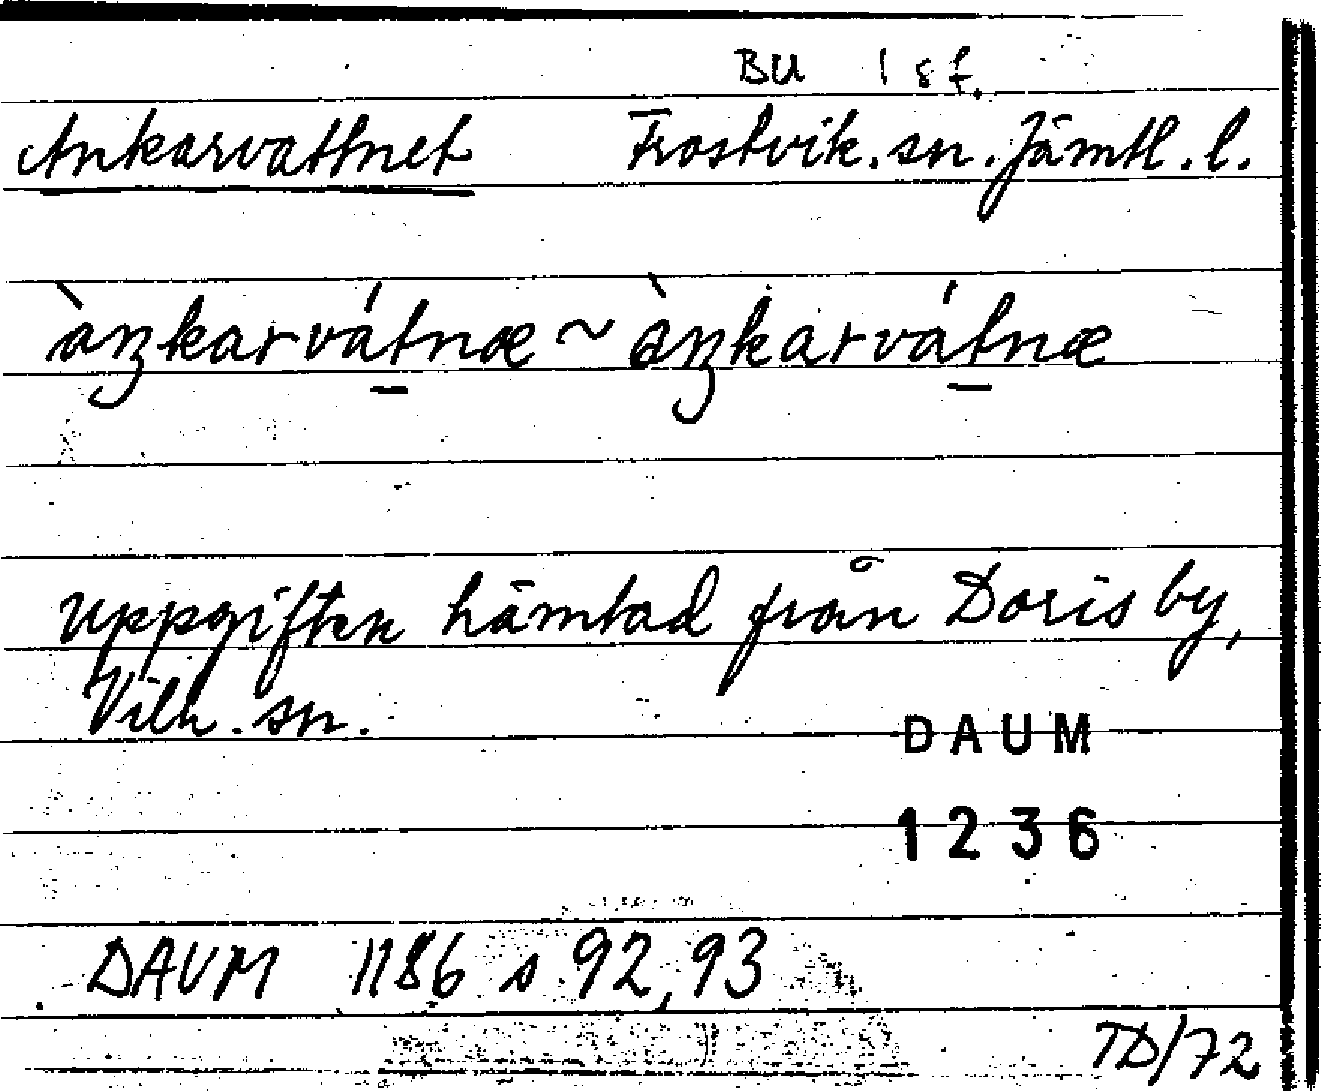 BU 1 s f.
Ankarvattnet Frostvik. sn. Jämtl. l.
àŋkarvátnæ ~ àŋkarvátnæ
uppgiften hämtad från Doris by,
Vilh. sn.
DAUM
1236
DAUM 1186 s 92, 93
TD/72